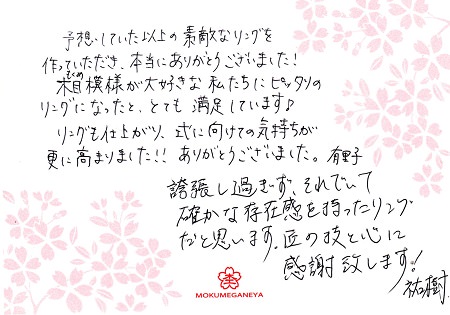 予想していた以上の素敵なリングを
作っていただき、本当にありがとうございました!
木目模様が大好きな私たちにピッタリの
もくめ
リングになったと、とても満足しています♪
リングも仕上がり、式に向けての気持ちが
更に高まりました!! ありがとうございました。有里子
誇張し過ぎず、それでいて
確かな存在感を持ったリング
だと思います。匠の技と心に
感謝致します!
祐樹.
MOKUMEGANEYA